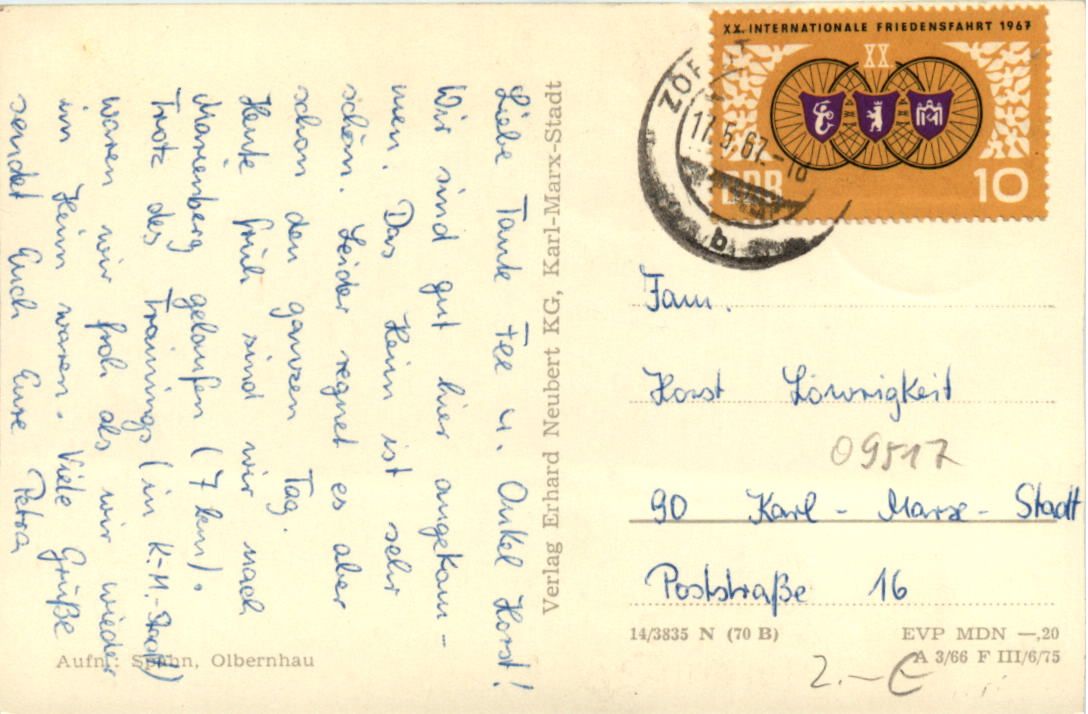 Liebe Tante Fee u. Onkel Horst!
Wir sind gut hier angekom-
men. Das Heim ist sehr
schön. Leider regnet es aber
schon den ganzen Tag.
Heute früh sind wir nach
Marienberg gelaufen (7 km).
Trotz des Trainings (in K.-M.-Stadt)
waren wir froh als wir wieder
im Heim waren. Viele Grüße
sendet Euch Eure Petra
Aufn.: Spahn, Olbernhau
Verlag Erhard Neubert KG, Karl-Marx-Stadt
XX. INTERNATIONALE FRIEDENSFAHRT 1967
XX
DDR
10
17.5.67.-18
b
Fam.
Horst Löwrigkeit
09517
90 Karl-Marx-Stadt
Poststraße 16
14/3835 N (70 B)
EVP MDN —,20
A 3/66 F III/6/75
2.-€